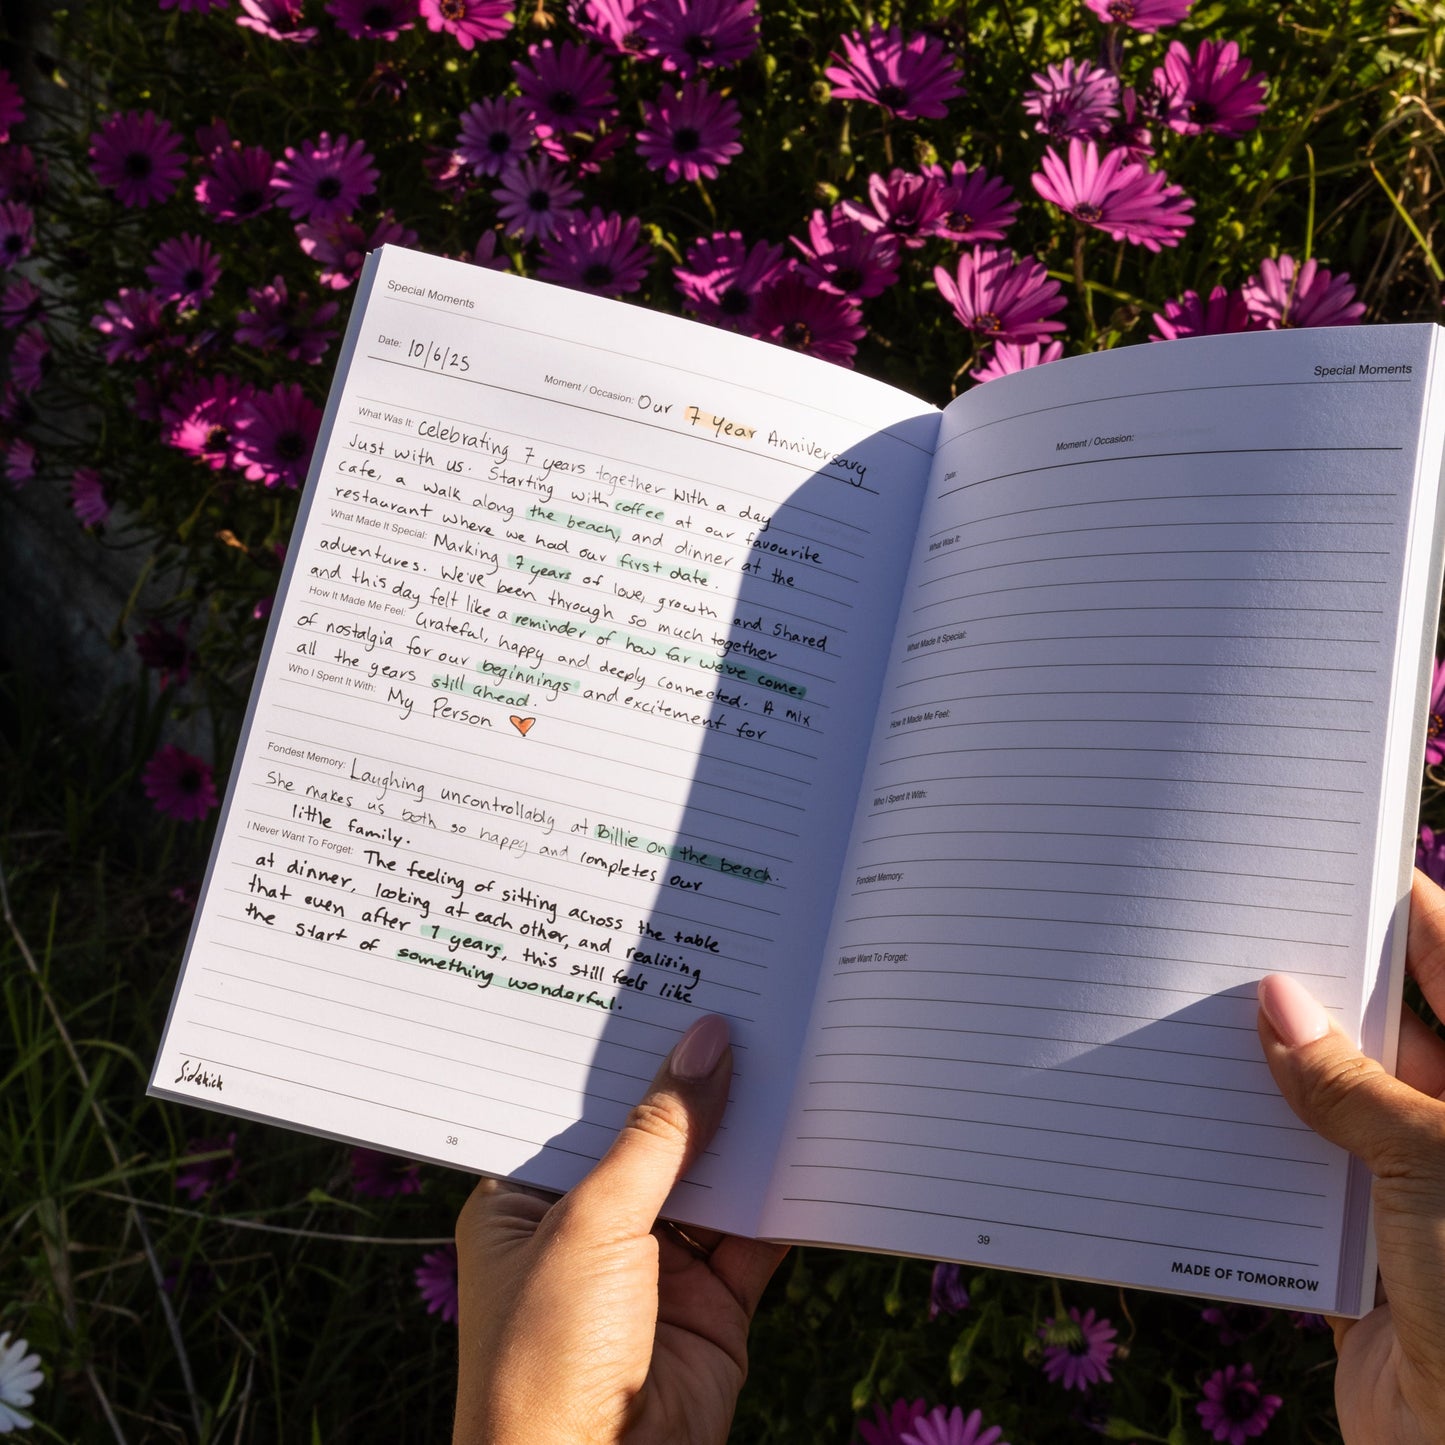 Special Moments
Date: 10/6/25
Moment / Occasion: Our 7 Year Anniversary
What Was It: Celebrating 7 years together with a day
Just with us. Starting with coffee at our favourite
cafe, a walk along the beach, and dinner at the
restaurant where we had our first date.
What Made It Special: Marking 7 years of love, growth and shared
adventures. We've been through so much together
and this day felt like a reminder of how far we've come.
How It Made Me Feel: Grateful, happy and deeply connected. A mix
of nostalgia for our beginnings and excitement for
all the years still ahead.
Who I Spent It With: My Person
Fondest Memory: Laughing uncontrollably at Billie on the beach.
She makes us both so happy and completes our
little family.
I Never Want To Forget: The feeling of sitting across the table
at dinner, looking at each other, and realising
that even after 7 years, this still feels like
the start of something wonderful.
Sidekick
38
Special Moments
Date:
Moment / Occasion:
What Was It:
What Made It Special:
How It Made Me Feel:
Who I Spent It With:
Fondest Memory:
I Never Want To Forget:
39
MADE OF TOMORROW